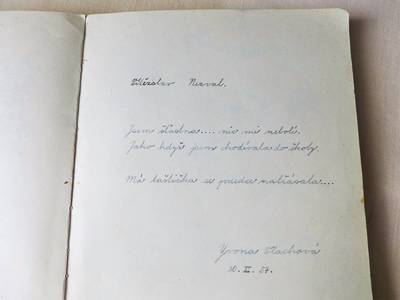 Vítězslav Nezval.
Jsem šťastna.... nic mě nebolí.
Jako když jsem chodívala do školy.
Má taštička se prudce natřásala...
Yvona Vlachová
20. II. 57.